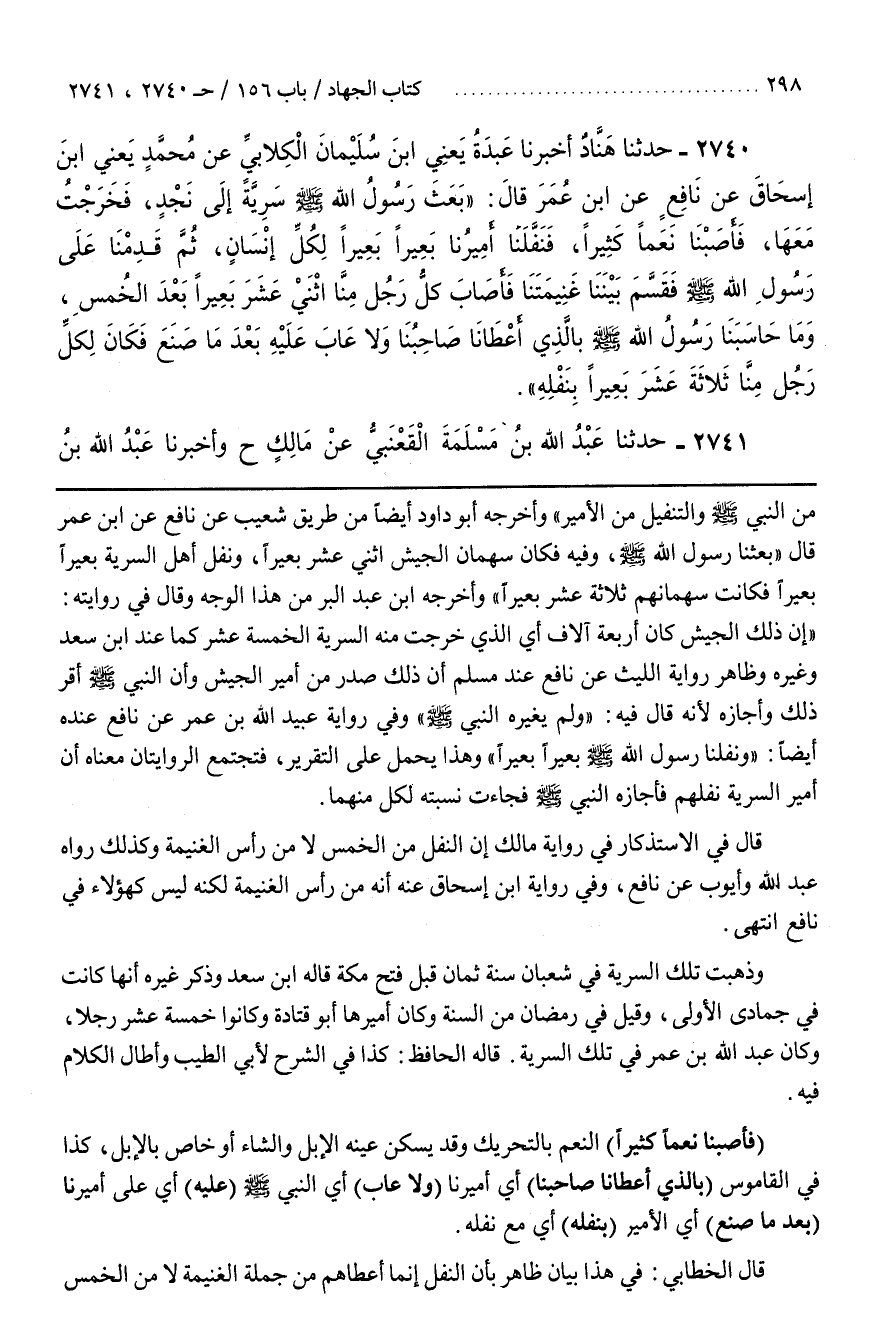 ٢٩٨ ..................................... كتاب الجهاد / باب ١٥٦ / حـ ٢٧٤٠ ، ٢٧٤١
٢٧٤٠ ـ حدثنا هَنَّادٌ أخبرنا عَبدَةُ يَعنِي ابنَ سُلَيْمانَ الْكِلابيِّ عن مُحمَّدٍ يَعني ابنَ
إسحَاقَ عن نَافِعٍ عن ابن عُمَرَ قالَ: «بَعَثَ رَسُولُ الله ﷺ سَرِيَّةً إلَى نَجْدٍ، فَخَرَجْتُ
مَعَهَا، فَأَصَبْنَا نَعَماً كَثِيراً، فَنَفَّلَنَا أَمِيرُنا بَعِيراً بَعِيراً لِكُلِّ إنْسَانٍ، ثُمَّ قَدِمْنَا عَلَى
رَسُولِ الله ﷺ فَقَسَّمَ بَيْنَنَا غَنِيمَتَنَا فَأَصَابَ كلُّ رَجُلٍ مِنَّا اثْنَيْ عَشَرَ بَعِيراً بَعْدَ الخُمسِ،
وَمَا حَاسَبَنَا رَسُولُ الله ﷺ بالَّذِي أَعْطَانَا صَاحِبُنَا وَلا عَابَ عَلَيْهِ بَعْدَ مَا صَنَعَ فَكَانَ لِكلِّ
رَجُلٍ مِنَّا ثَلاثَةَ عَشَرَ بَعِيراً بِنَفْلِهِ».
٢٧٤١ ـ حدثنا عَبْدُ الله بنُ مَسْلَمَةَ الْقَعْنَبيُّ عنْ مَالِكٍ ح وأخبرنا عَبْدُ الله بنُ
من النبي ﷺ والتنفيل من الأمير» وأخرجه أبو داود أيضاً من طريق شعيب عن نافع عن ابن عمر
قال «بعثنا رسول الله ﷺ، وفيه فكان سهمان الجيش اثني عشر بعيراً، ونفل أهل السرية بعيراً
بعيراً فكانت سهمانهم ثلاثة عشر بعيراً» وأخرجه ابن عبد البر من هذا الوجه وقال في روايته:
«إن ذلك الجيش كان أربعة آلاف أي الذي خرجت منه السرية الخمسة عشر كما عند ابن سعد
وغيره وظاهر رواية الليث عن نافع عند مسلم أن ذلك صدر من أمير الجيش وأن النبي ﷺ أقر
ذلك وأجازه لأنه قال فيه: «ولم يغيره النبي ﷺ» وفي رواية عبيد الله بن عمر عن نافع عنده
أيضاً: «ونفلنا رسول الله ﷺ بعيراً بعيراً» وهذا يحمل على التقرير، فتجتمع الروايتان معناه أن
أمير السرية نفلهم فأجازه النبي ﷺ فجاءت نسبته لكل منهما.
قال في الاستذكار في رواية مالك إن النفل من الخمس لا من رأس الغنيمة وكذلك رواه
عبد الله وأيوب عن نافع، وفي رواية ابن إسحاق عنه أنه من رأس الغنيمة لكنه ليس كهؤلاء في
نافع انتهى.
وذهبت تلك السرية في شعبان سنة ثمان قبل فتح مكة قاله ابن سعد وذكر غيره أنها كانت
في جمادى الأولى، وقيل في رمضان من السنة وكان أميرها أبو قتادة وكانوا خمسة عشر رجلا،
وكان عبد الله بن عمر في تلك السرية. قاله الحافظ: كذا في الشرح لأبي الطيب وأطال الكلام
فيه.
(فأصبنا نعماً كثيراً) النعم بالتحريك وقد يسكن عينه الإبل والشاء أو خاص بالإبل، كذا
في القاموس (بالذي أعطانا صاحبنا) أي أميرنا (ولا عاب) أي النبي ﷺ (عليه) أي على أميرنا
(بعد ما صنع) أي الأمير (بنفله) أي مع نفله.
قال الخطابي: في هذا بيان ظاهر بأن النفل إنما أعطاهم من جملة الغنيمة لا من الخمس